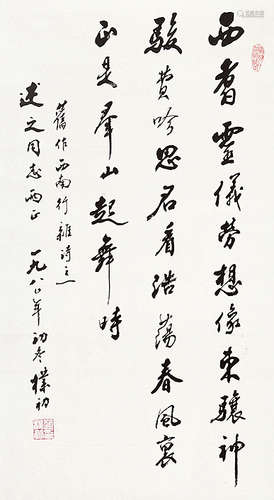 西看灵仪劳想像東驤神
駿費吟思君看浩蕩春風裏
正是羣山起舞時
舊作西南行雜詩之一
述之同志两正
一九八〇年初冬樸初